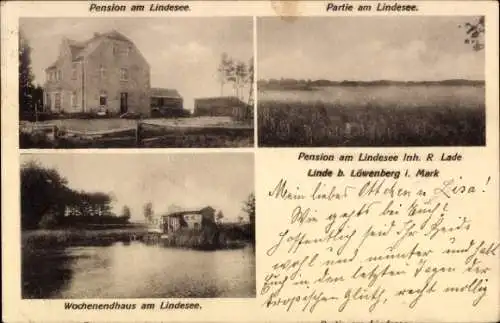 Pension am Lindesee.
Partie am Lindesee.
Pension am Lindesee Inh. R Lade
Linde b. Löwenberg i. Mark
Mein liebes Ottchen u Lisa!
Wie gehts bei Euch?
Hoffentlich seid Ihr Beide
wohl und munter und habt
Euch in den letzten Tagen der
tropischen Glut, recht mollig
Wochenendhaus am Lindesee.